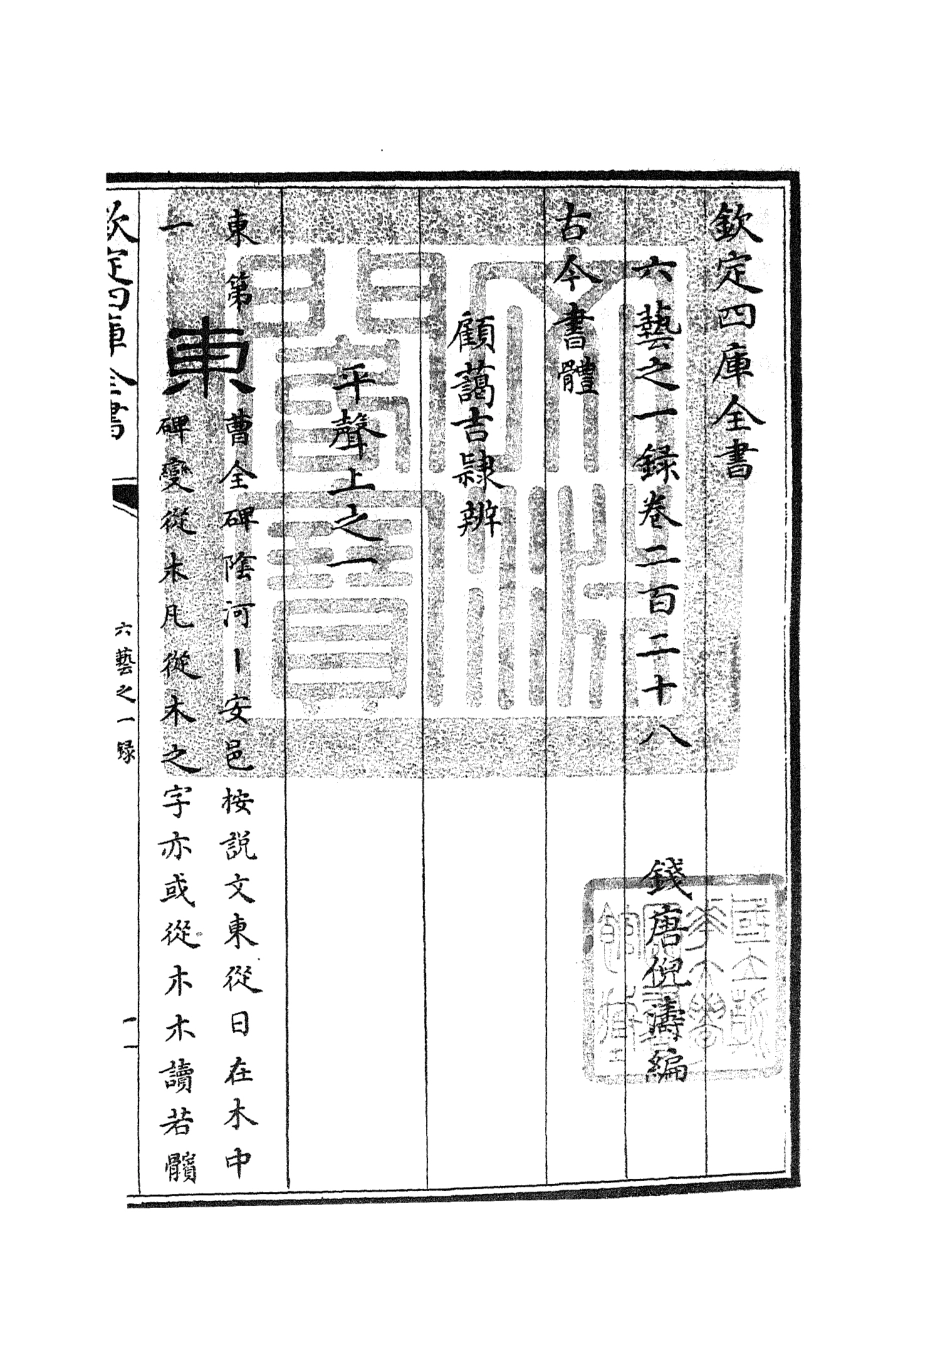 欽定四庫全書
六藝之一錄卷二百二十八
錢唐倪濤編
古今書體
顧藹吉隷辨
平聲上之一
東第一
東
曹全碑陰河丨安邑按説文東從日在木中
碑變從木凡從木之字亦或從木木讀若髕
欽定四庫全書
六藝之一録
一